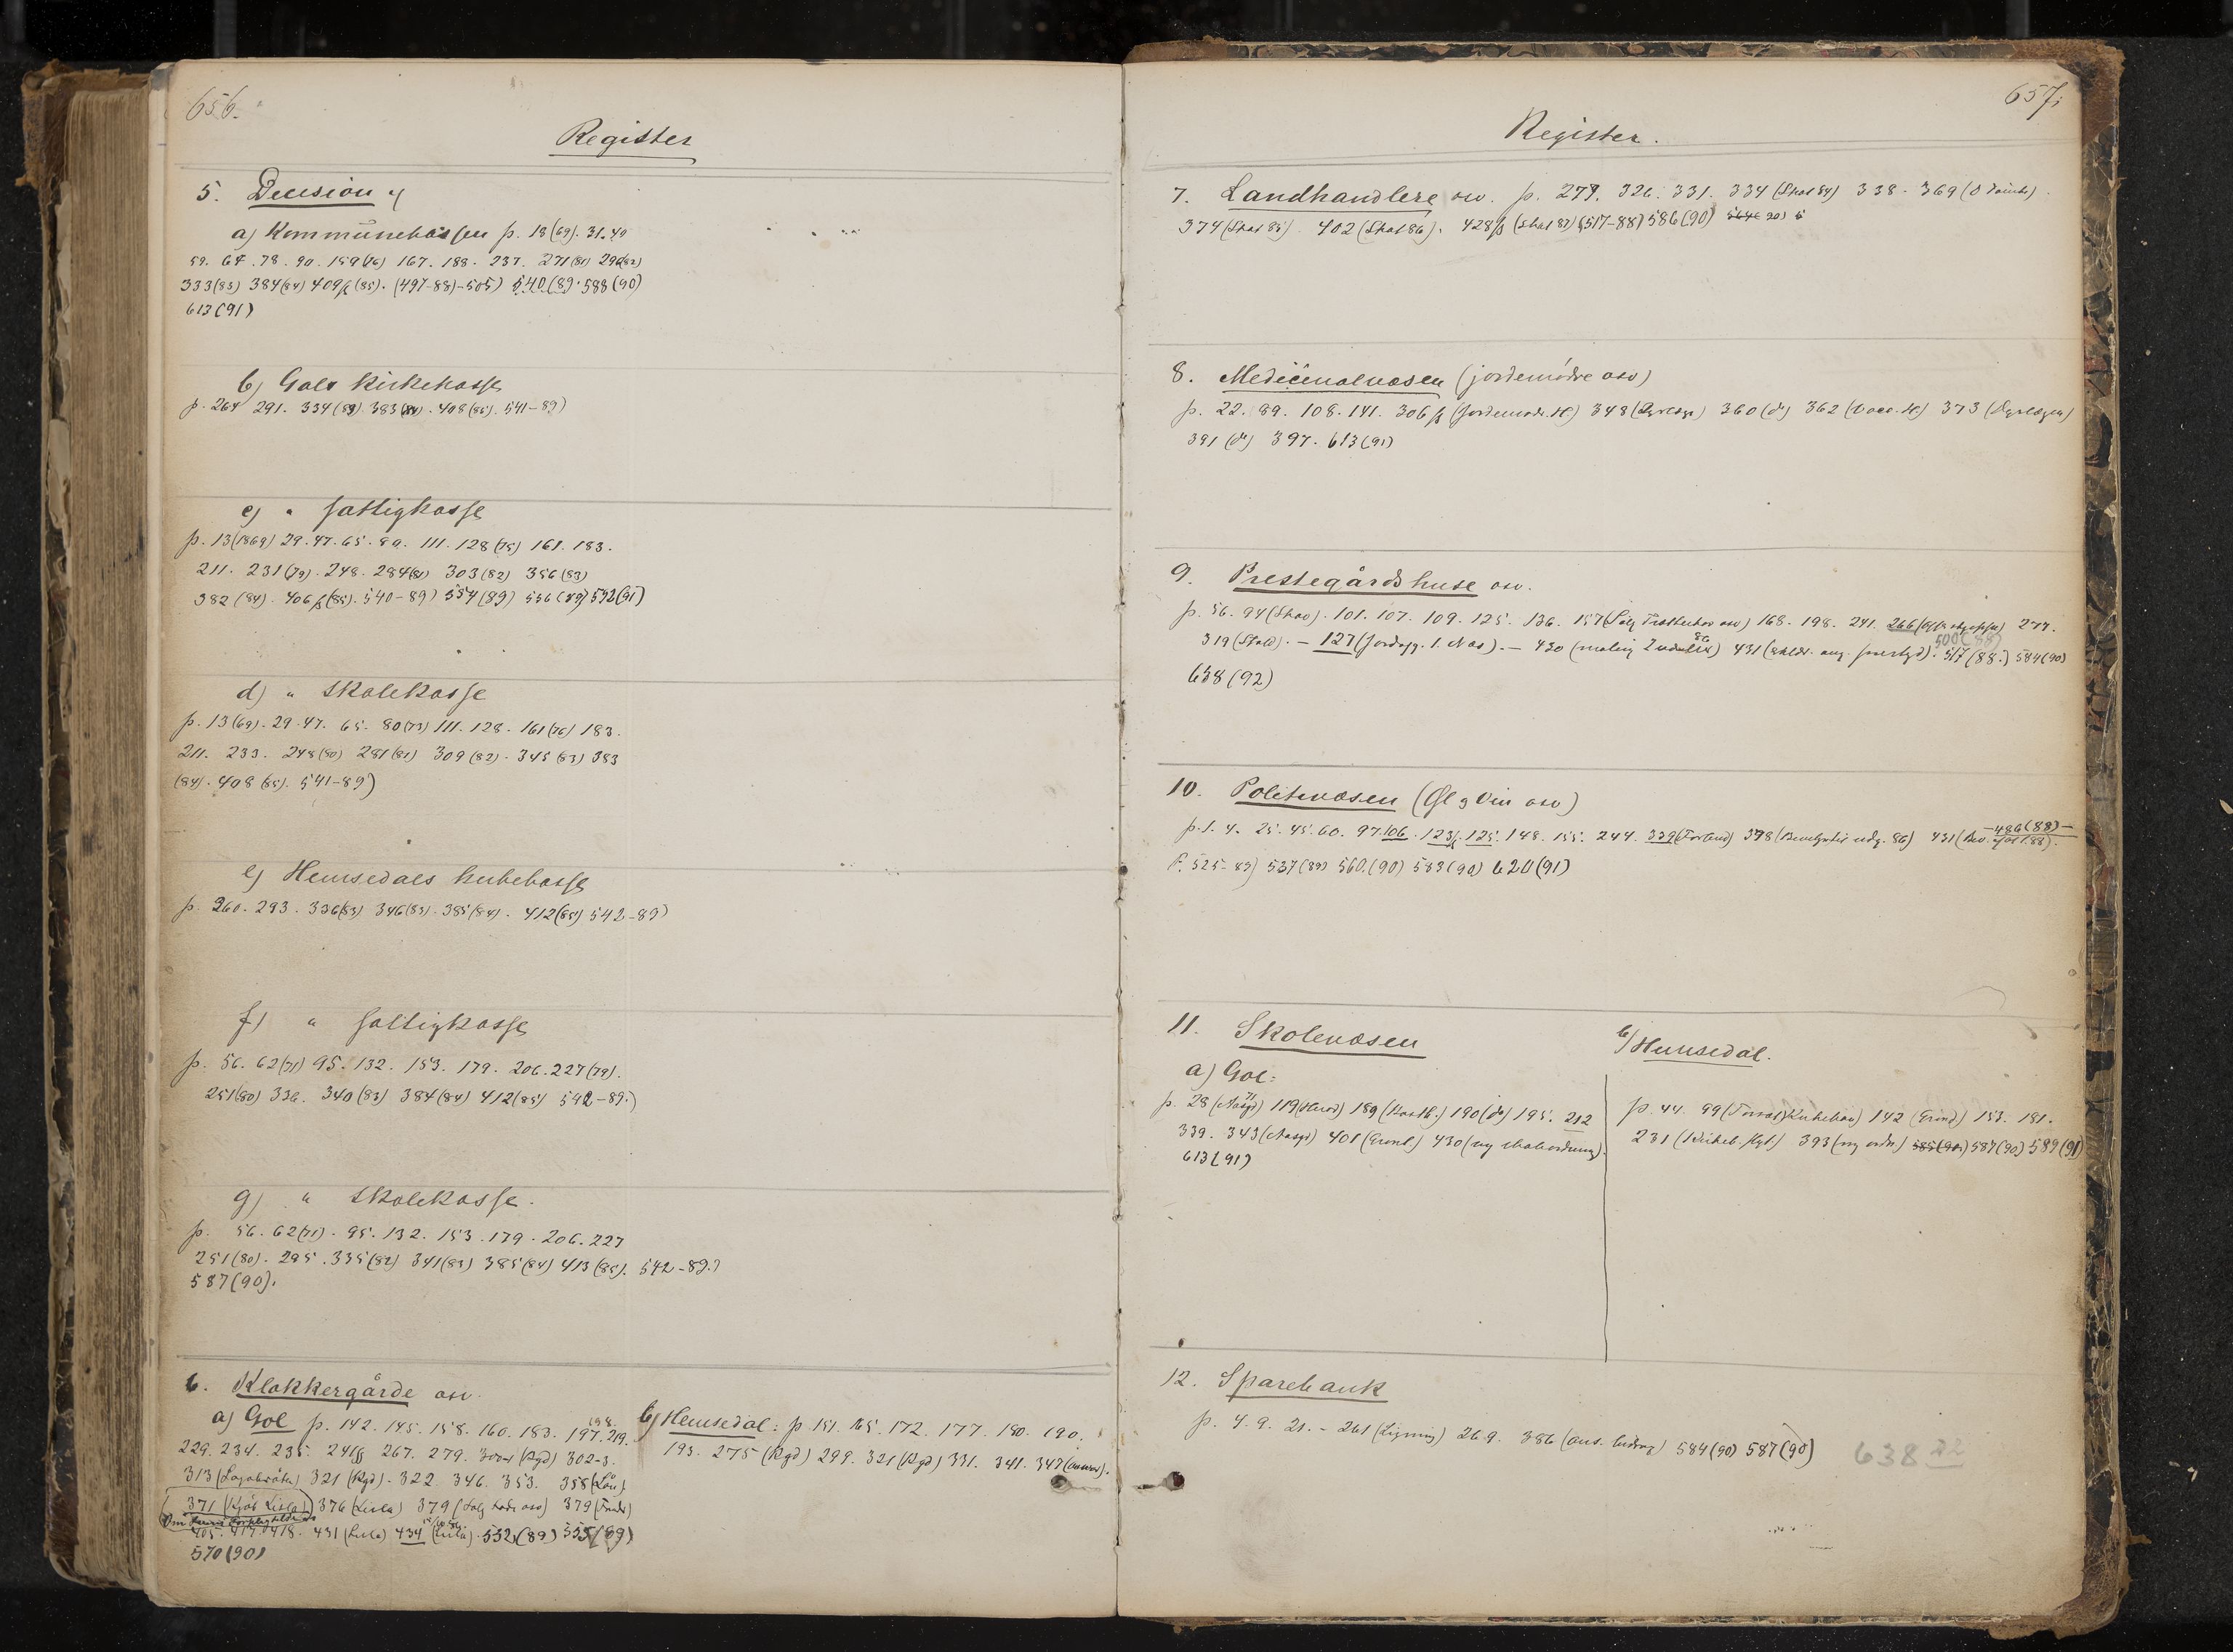 656.
Register
5. Decision af
a) Kommunekassen p. 18(69). 31. 40
59. 67. 78. 90. 159(76) 167. 188. 237. 271(81) 296(82)
333(83) 384(84) 409ff(85). (497-88)-505) 540(89. 588(90)
613(91)
b) Gols Kirkekasse
p. 264 291. 334(83) 383(84). 408(85). 541-89)
c) " fattigkasse
p. 13(1869) 29. 47. 65. 80. 111. 128(75) 161. 183.
211. 231(79). 248. 284(81) 303(82) 356(83)
382(84). 406ff(85). 540-89) 554(89) 556(89) 592(91)
d) " Skolekasse
p. 13(69). 29. 47. 65. 80(73) 111. 128. 161(76) 183.
211. 233. 248(80) 281(81) 309(82). 345(83) 383
(84). 408(85). 541-89)
e) Hemsedals kirkekasse
p. 260. 293. 336(83) 346(83). 385(84). 412(85) 542-89)
f) " fattigkasse
p. 56. 62(71) 95. 132. 153. 179. 206. 227(79).
251(80) 336. 340(83) 384(84) 412(85) 542-89.)
g) " Skolekasse.
p. 56. 62(71). 95. 132. 153. 179. 206. 227
251(80). 295. 335(82) 341(83) 385(84) 413(85). 542-89.)
587(90).
6. Klokkergårde osv.
a) Gol p. 142. 145. 158. 160. 183. 197. 198. 219.
229. 234. 235. 241ff 267. 279. (Rgd) 302-3.
313 321 (Rgd). 322. 346. 353. 358 (Lån)
371 (Kjøb Lisla) 376 (Lisla) 379 (Salg osv) 379
Om
405. 417. 418. 431 (Lisla) 434 (Lisla). 552(89) 555(89)
570(90)
b) Hemsedal: p. 151. 165. 172. 177. 180. 190.
193. 275 (Rgd) 299. 321 (Rgd) 331. 341. 347
657.
Register.
7. Landhandlere osv. p. 279. 326. 331. 334 (Skat 84) 338. 369
374 (Skat 85). 402 (Skat 86). 428ff (Skat 87) (517-88) 586(90)
8. Medicinalvæsen (jordemødre osv)
p. 22. 89. 108. 141. 306ff 348 (Dyrlæge) 360 (do) 362 373 (Dyrlægen)
391 (do) 397. 613(91)
9. Prestegårdshuse osv.
p. 56. 94 (Skov). 101. 107. 109. 125. 136. 157 168. 198. 241. 266 277.
500(88)
319 (Stald). - 127 - 430 431 517(88.) 584(90)
638(92)
10. Politivæsen (Øl g Vin osv)
p. 1. 4. 25. 45. 60. 97. 106. 123ff. 125. 148. 155. 244. 339 398 431 -486(88)-
P. 525-89) 537(89) 560.(90) 583(90) 620(91)
11. Skolevæsen
a) Gol:
p. 28 119 189 190 (do) 195. 212
339. 343 401 430 (ny skoleordning).
613(91)
b) Hemsedal.
p. 44. 99 142 153. 181.
231 393 (ny ordn.) 585(90.) 587(90) 589(91)
12. Sparebank
p. 4. 9. 21. - 261 (Ligning) 269. 386 584(90) 587(90) 638